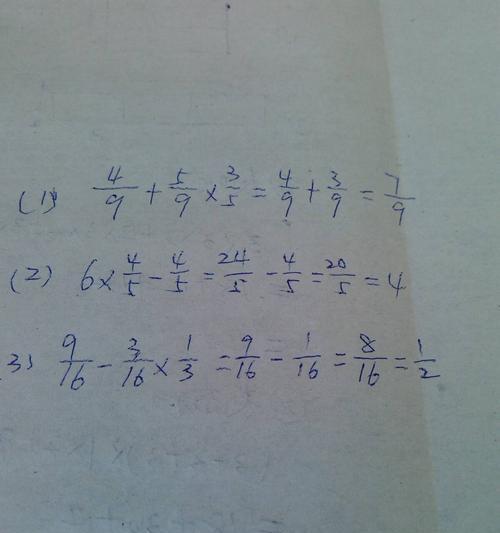 (1) 4/9 + 5/9 × 3/5 = 4/9 + 3/9 = 7/9
(2) 6 × 4/5 - 4/5 = 24/5 - 4/5 = 20/5 = 4
3) 9/16 - 3/16 × 1/3 = 9/16 - 1/16 = 8/16 = 1/2